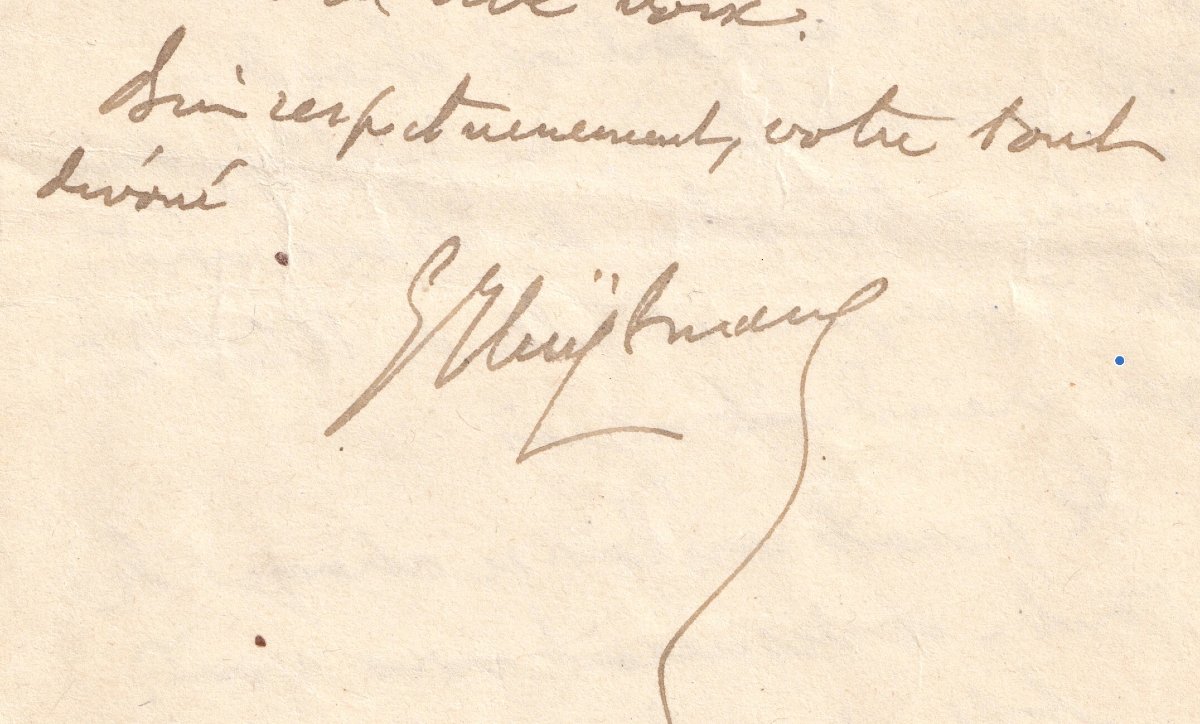 vive voix.
Bien respectueusement, votre tout
dévoué
G Huÿsmans